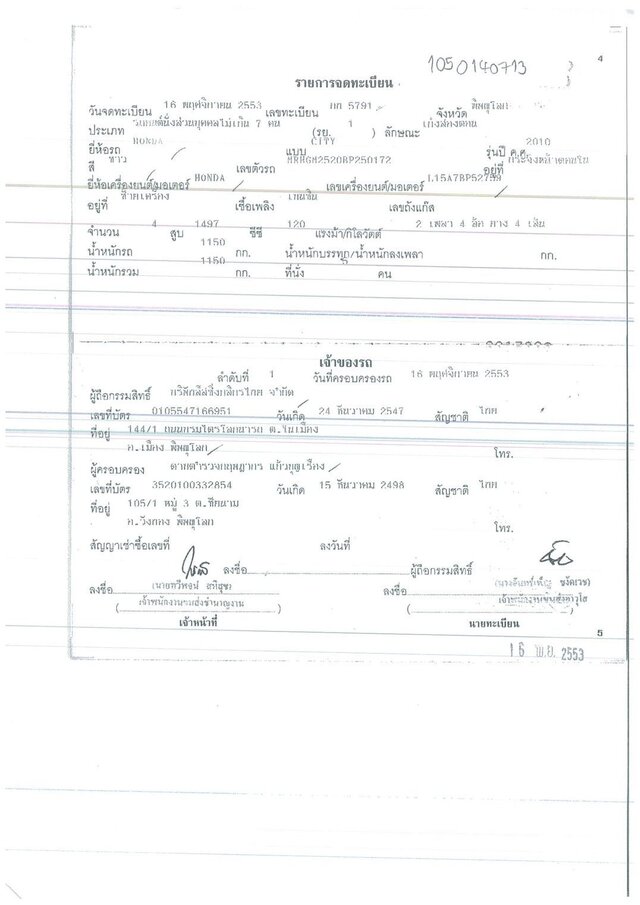 1050140713
4
รายการจดทะเบียน
วันจดทะเบียน 16 พฤศจิกายน 2553 เลขทะเบียน กก 5791 จังหวัด พิษณุโลก
ประเภท รถยนต์นั่งส่วนบุคคลไม่เกิน 7 คน (รย. 1 ) ลักษณะ เก๋งสองตอน
ยี่ห้อรถ HONDA แบบ CITY รุ่นปี ค.ศ. 2010
สี ขาว เลขตัวรถ MRHGM2520BP250172 อยู่ที่
ยี่ห้อเครื่องยนต์/มอเตอร์ HONDA เลขเครื่องยนต์/มอเตอร์
อยู่ที่ ซ้ายเครื่อง เชื้อเพลิง เบนซิน เลขถังแก๊ส
จำนวน 4 สูบ 1497 ซีซี 120 แรงม้า/กิโลวัตต์ 2 เพลา 4 ล้อ ยาง 4 เส้น
น้ำหนักรถ 1150 กก. น้ำหนักบรรทุก/น้ำหนักลงเพลา กก.
น้ำหนักรวม 1150 กก. ที่นั่ง คน
เจ้าของรถ
ลำดับที่ 1 วันที่ครอบครองรถ 16 พฤศจิกายน 2553
ผู้ถือกรรมสิทธิ์ บริษัทลีสซิ่งกสิกรไทย จำกัด
เลขที่บัตร 0105547166951 วันเกิด 24 ธันวาคม 2547 สัญชาติ ไทย
ที่อยู่ 144/1 ถนนบรมไตรโลกนารถ ต.ในเมือง
อ.เมือง พิษณุโลก โทร.
ผู้ครอบครอง ดาบตำรวจ แก้วบุญเรือง
เลขที่บัตร 3520100332854 วันเกิด 15 ธันวาคม 2498 สัญชาติ ไทย
ที่อยู่ 105/1 หมู่ 3 ต.ชัยนาม
อ.วังทอง พิษณุโลก โทร.
สัญญาเช่าซื้อเลขที่ ลงวันที่
ลงชื่อ ผู้ถือกรรมสิทธิ์
ลงชื่อ ลงชื่อ
เจ้าพนักงานขนส่งชำนาญงาน เจ้าพนักงานขนส่งอาวุโส
เจ้าหน้าที่ นายทะเบียน
5
16 พ.ย. 2553